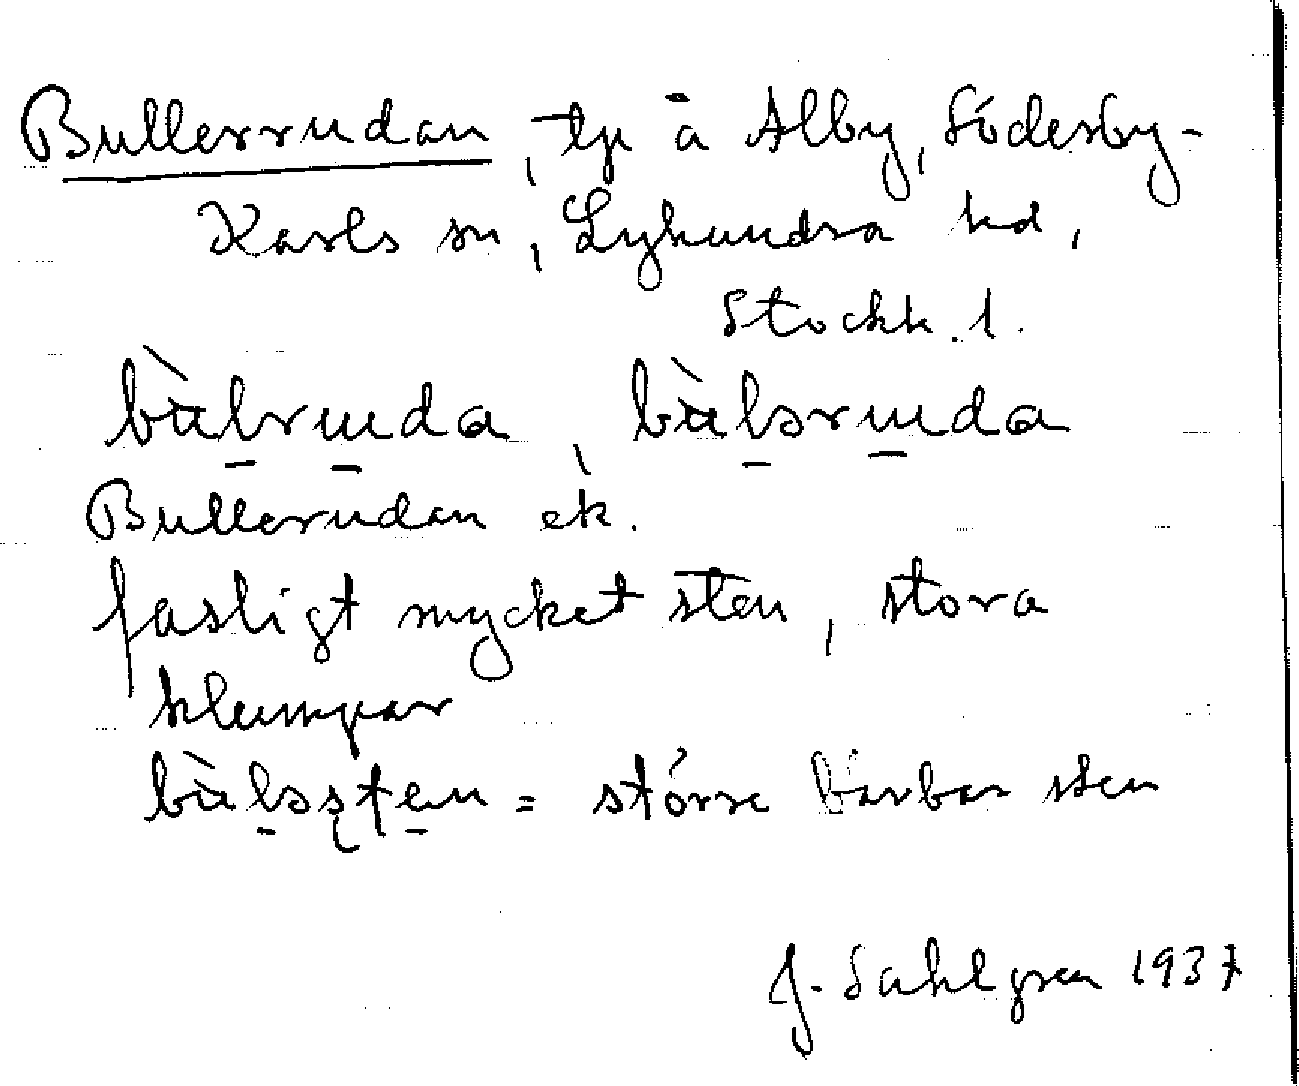 Bullerrudan, tp å Alby, Söderby-
Karls sn, Lyhundra hd,
Stockh. l.
bùlruda, bùlsruda
Bullerudan ek.
fasligt mycket sten, stora
klumpar
bùlssten = större bärbar sten
J. Sahlgren 1937